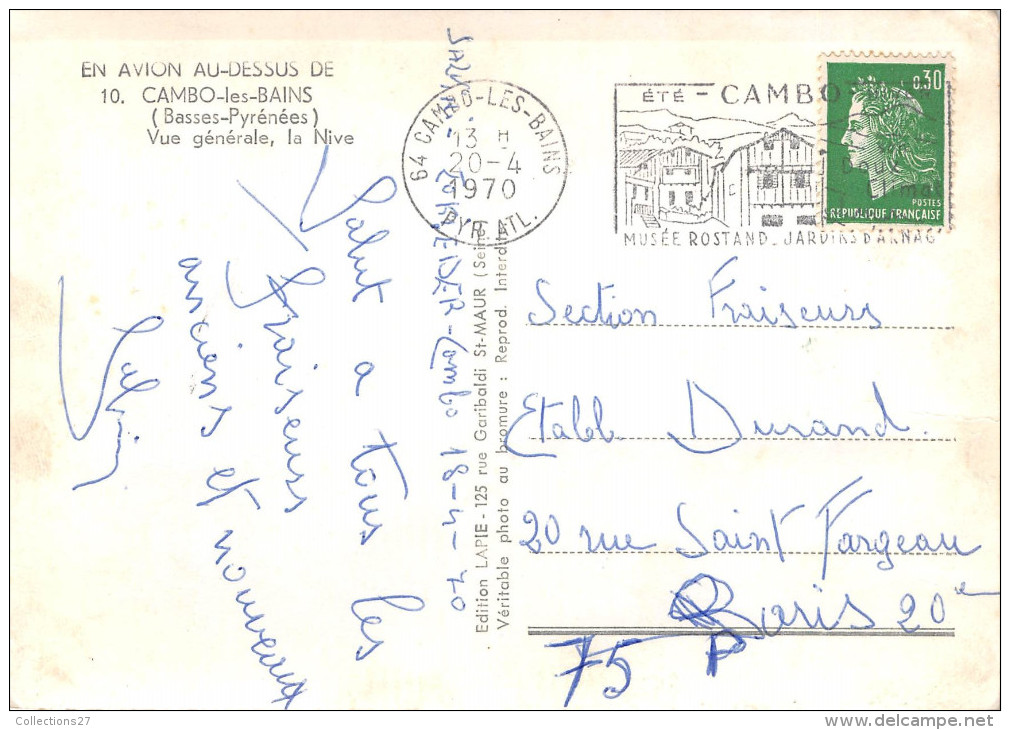 EN AVION AU-DESSUS DE
10. CAMBO-les-BAINS
(Basses-Pyrénées)
Vue générale, la Nive
64 CAMBO-LES-BAINS
13 H
20-4
1970
PYR. ATL.
ÉTÉ - CAMBO
MUSÉE ROSTAND. JARDINS D'ARNAG
0,30
POSTES
RÉPUBLIQUE FRANÇAISE
Cambo 18-4-70
Salut a tous les
fraiseurs
anciens et nouveaux
Edition LAPIE - 125 rue Garibaldi St-MAUR (Sein
Véritable photo au bromure : Reprod. Interdite
Section Fraiseurs
Etabl. Durand.
20 rue Saint Fargeau
Paris 20e
75 P
Collections27
http://www.delcampe.net